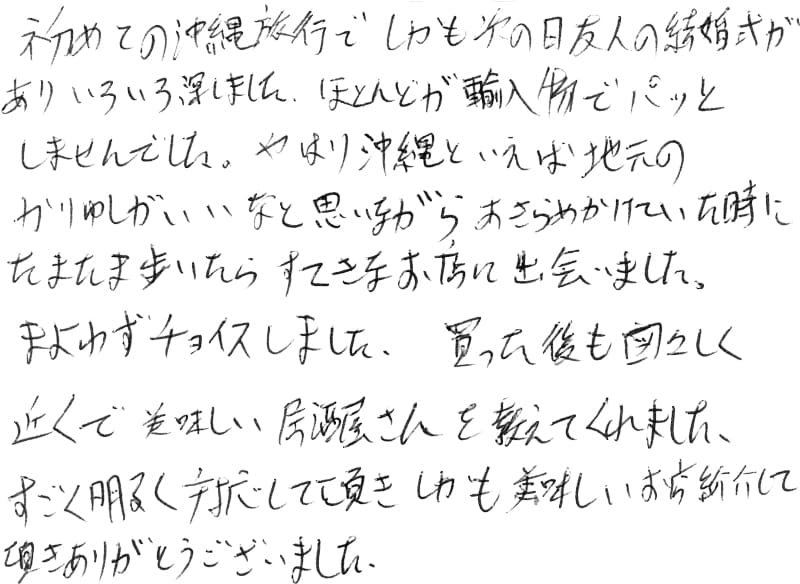 初めての沖縄旅行で しかも次の日友人の結婚式が
あり いろいろ探しました。ほとんどが輸入物でパッと
しませんでした。やはり沖縄といえば地元の
かりゆしがいいなと思いながら あきらめかけていた時に
たまたま歩いたら すてきなお店に出会いました。
まよわずチョイスしました、 買った後も図々しく
近くで美味しい居酒屋さんを教えてくれました、
すごく明るく対応して頂き しかも美味しいお店紹介して
頂きありがとうございました、